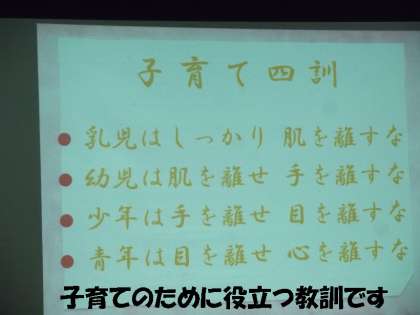 子育て四訓
乳児はしっかり 肌を離すな
幼児は肌を離せ 手を離すな
少年は手を離せ 目を離すな
青年は目を離せ 心を離すな
子育てのために役立つ教訓です